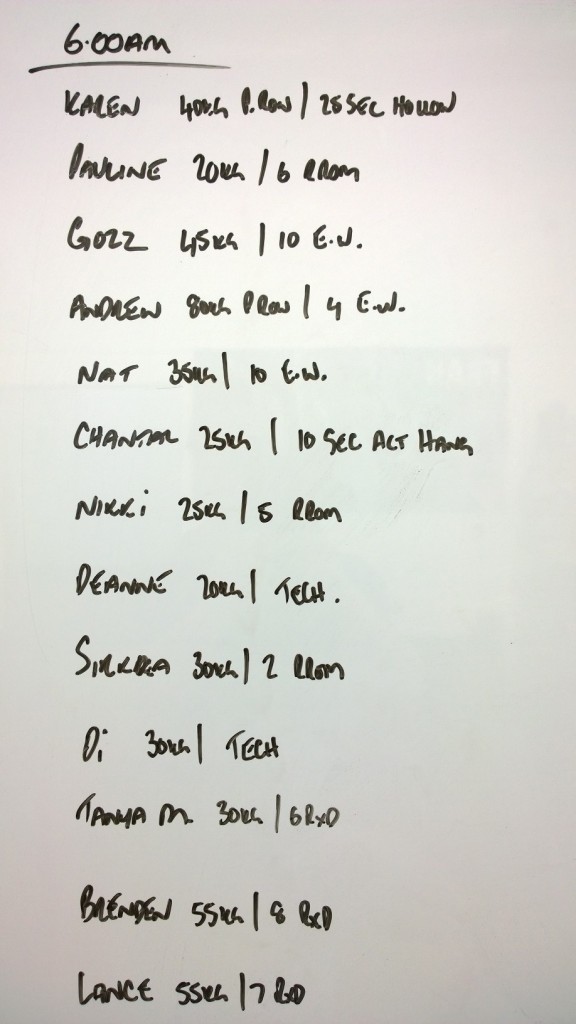 6.00AM
KAREN 40KG P.ROW | 25 SEC HOLLOW
PAULINE 20KG | 6 RROM
GOZZ 45KG | 10 E.W.
ANDREW 80KG P ROW | 4 E.W.
NAT 35KG | 10 E.W.
CHANTAL 25KG | 10 SEC ACT HANG
NIKKI 25KG | 5 RROM
DEANNE 20KG | TECH.
SIRKKA 30KG | 2 RROM
Di 30KG | TECH
TANYA M. 30KG | 6 RxD
BRENDEN 55KG | 8 RxD
LANCE 55KG | 7 RxD